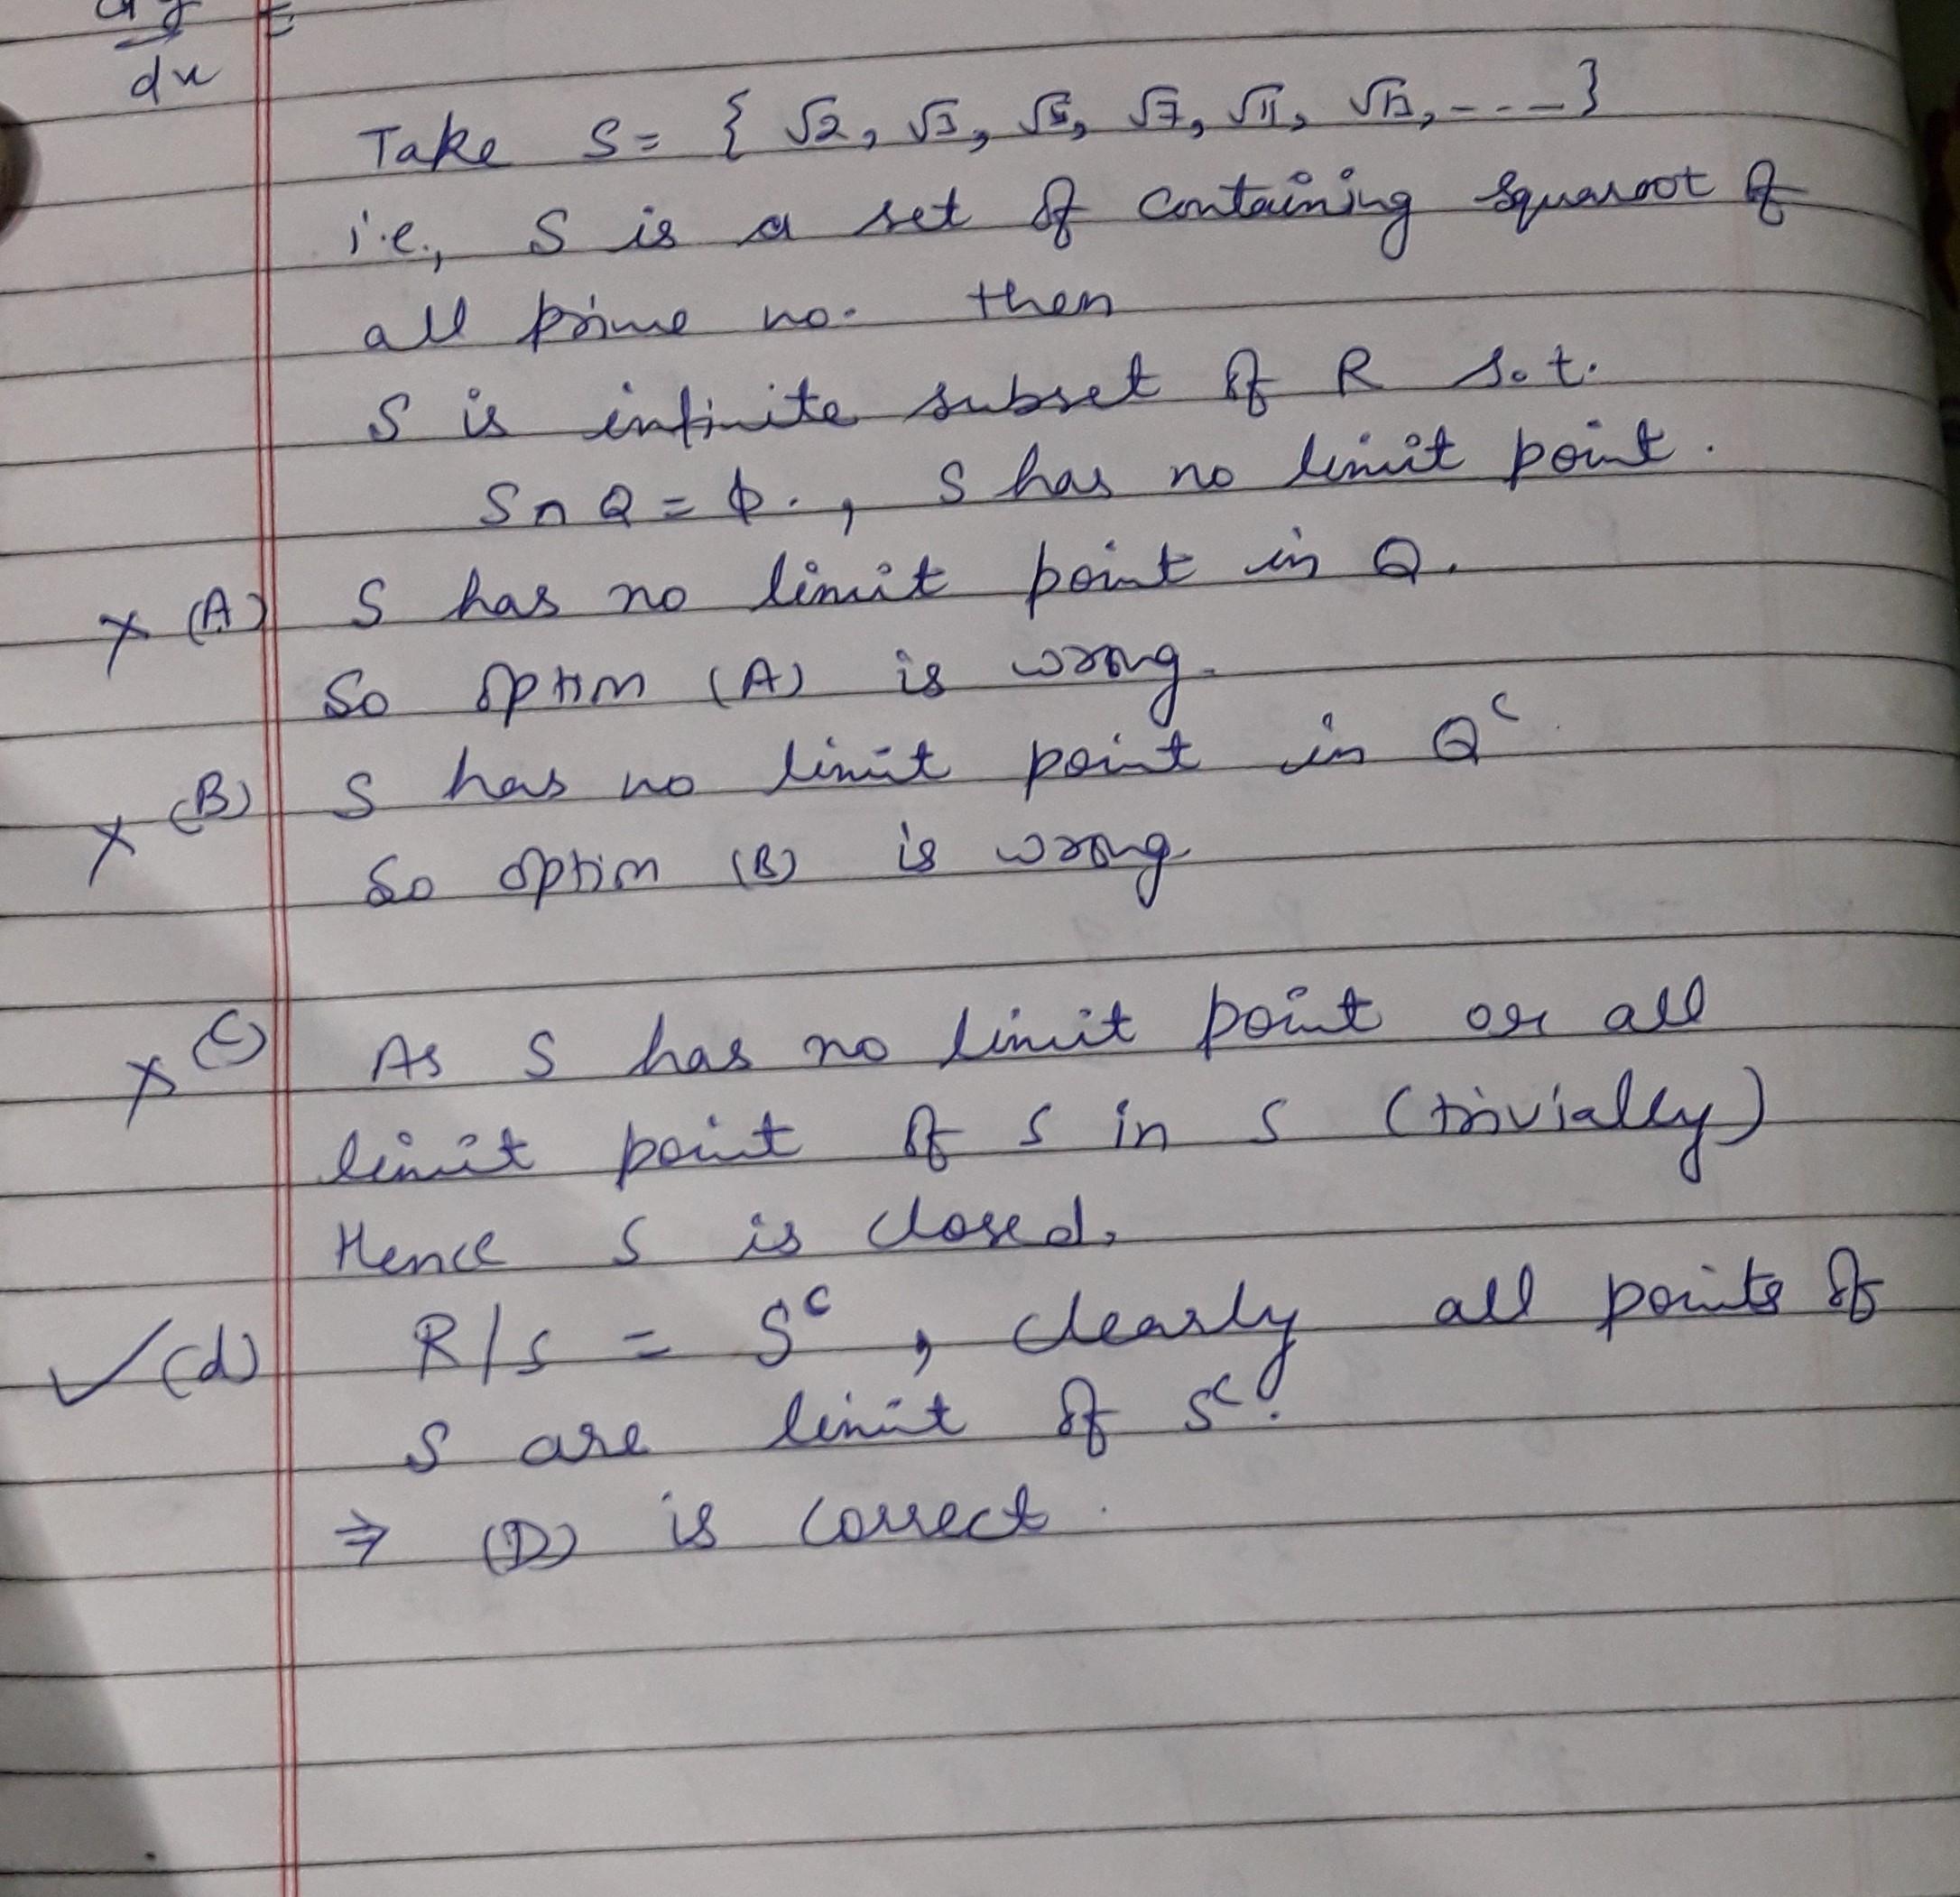 dx
Take S = { √2, √3, √5, √7, √11, √13, ---- }
i.e., S is a set of containing squaroot of
all prime no. then
S is infinite subset of R s.t.
S ∩ Q = ϕ., S has no limit point.
× (A) S has no limit point in Q.
So option (A) is wrong.
× (B) S has no limit point in Qᶜ
So option (B) is wrong
× (C) As S has no limit point or all
limit point of S in S (trivially)
Hence S is closed.
✓ (d) R/S = Sᶜ, clearly all points of
S are limit of Sᶜ.
⇒ (D) is correct.